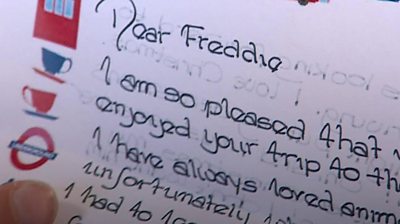 Dear Freddie
I am so pleased that
enjoyed your trip to th
I have always loved anim
unfortunately
I had to